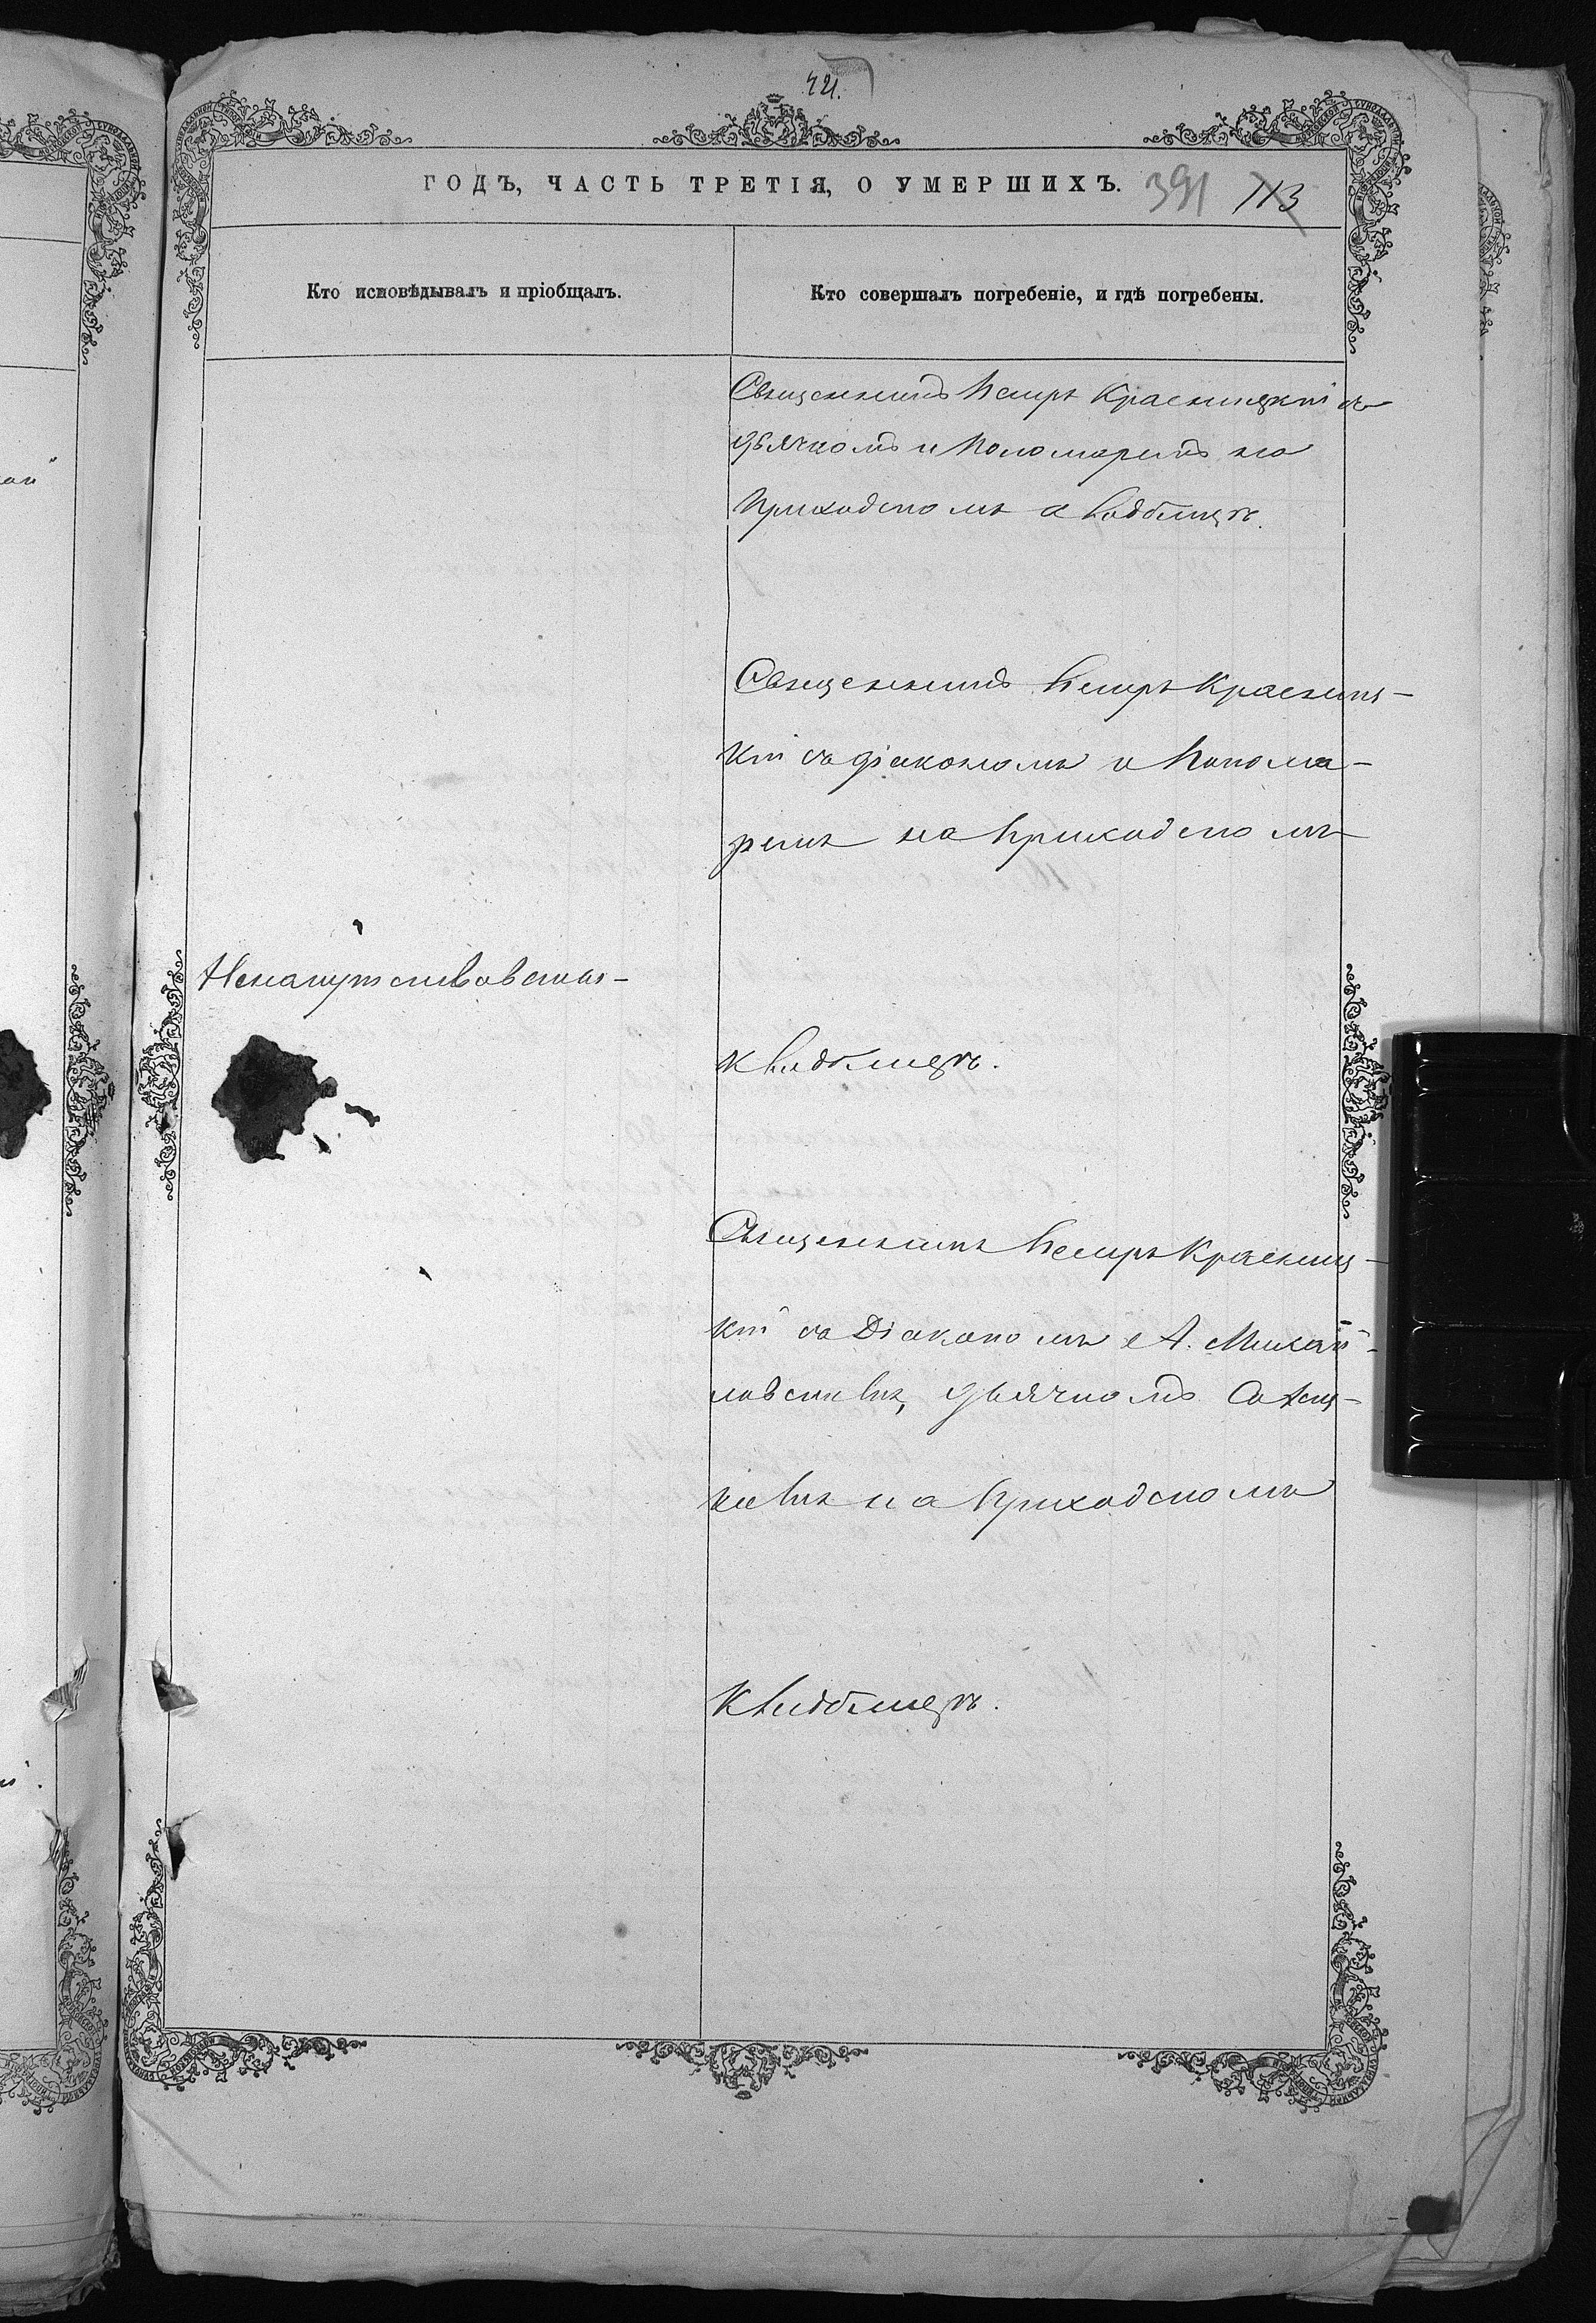 421.
ГОДЪ, ЧАСТЬ ТРЕТІЯ, О УМЕРШИХЪ.
391 113
Кто исповѣдывалъ и пріобщалъ.
Кто совершалъ погребеніе, и гдѣ погребены.
Священникъ Петръ Красницкій съ
дьячкомъ и Пономаремъ на
Приходскомъ кладбищѣ.
Священникъ Петръ Красниц-
кій съ діакономъ и Понома-
ремъ на Приходскомъ
Священникъ Петръ Красниц-
кладбищѣ.
кій съ Діакономъ А. Михай-
ловскимъ, дьячкомъ
на Приходскомъ
кладбищѣ.